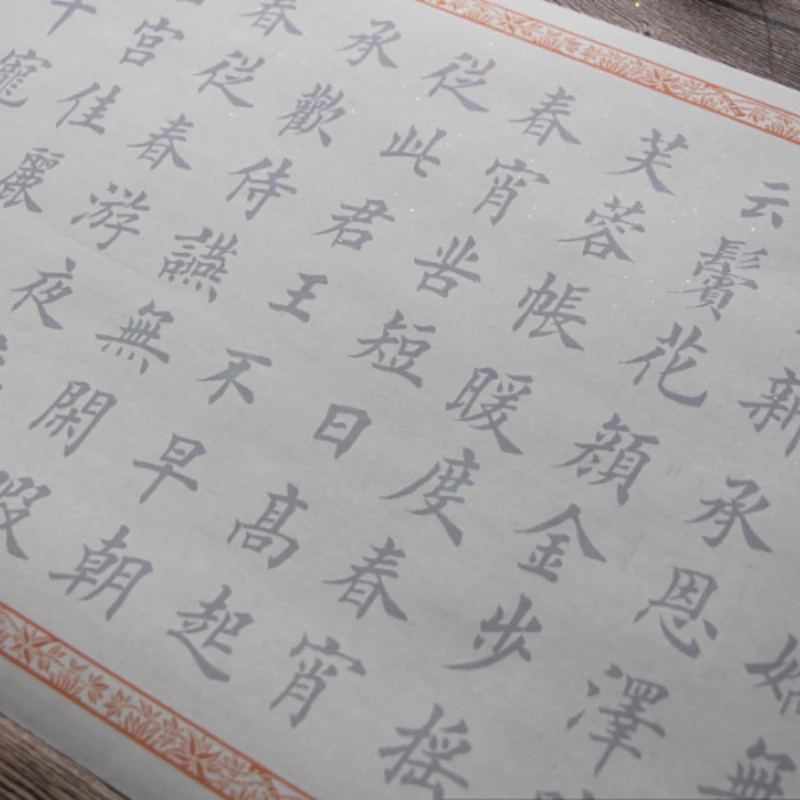 嬌無
新承恩澤
云鬢花顏金步搖
芙蓉帳暖度春宵
春宵苦短日高起
從此君王不早朝
承歡侍讌無閑暇
春從春游夜
宮佳麗
千寵